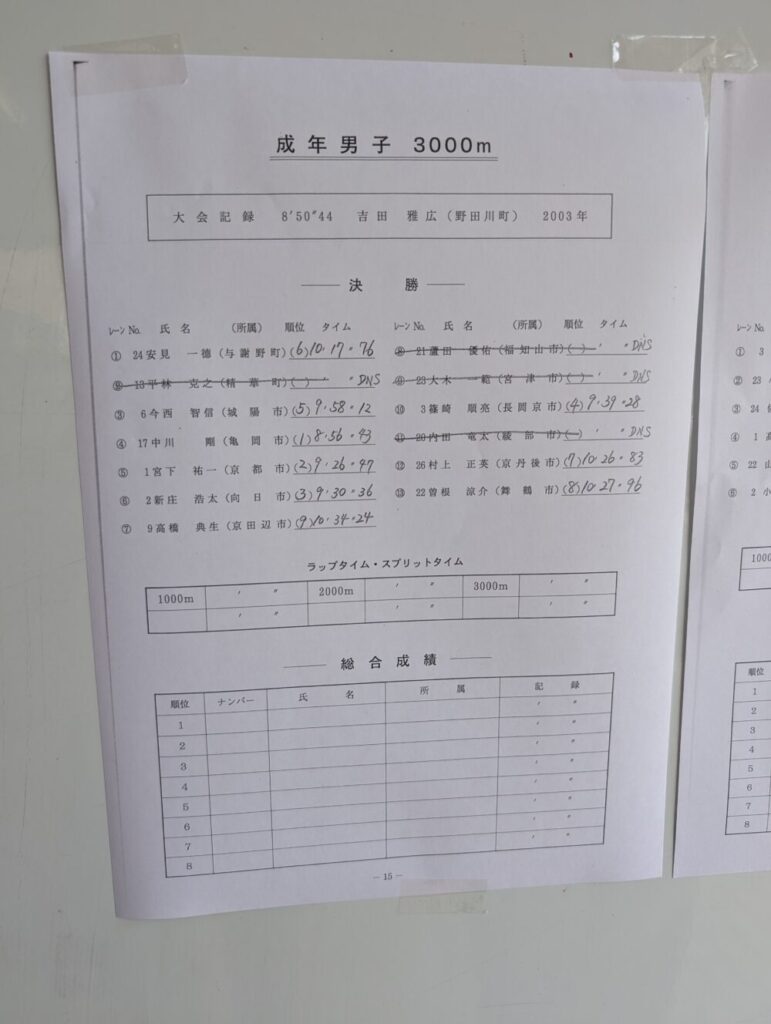 成年男子 3000m
大会記録 8'50"44 吉田 雅広（野田川町） 2003年
決 勝
ﾚｰﾝ No. 氏 名 （所属） 順位 タイム
① 24 安見 一徳（与謝野町）(6) 10・17・76
② 13 平林 克之（精華町）( ) ' " DNS
③ 6 今西 智信（城陽市）(5) 9・58・12
④ 17 中川 剛（亀岡市）(1) 8・56・43
⑤ 1 宮下 祐一（京都市）(2) 9・26・47
⑥ 2 新庄 浩太（向日市）(3) 9・30・36
⑦ 9 高橋 典生（京田辺市）(9) 10・34・24
ﾚｰﾝ No. 氏 名 （所属） 順位 タイム
⑧ 21 蘆田 優佑（福知山市）( ) ' " DNS
⑨ 23 大木 一範（宮津市）( ) ' " DNS
⑩ 3 篠崎 順亮（長岡京市）(4) 9・39・28
⑪ 20 内田 竜太（綾部市）( ) ' " DNS
⑫ 26 村上 正英（京丹後市）(7) 10・26・83
⑬ 22 曽根 涼介（舞鶴市）(8) 10・27・96
ラップタイム・スプリットタイム
1000m ' " 2000m ' " 3000m ' "
' " ' " ' "
総合成績
順位 ナンバー 氏 名 所 属 記 録
1 ' "
2 ' "
3 ' "
4 ' "
5 ' "
6 ' "
7 ' "
8 ' "
－15－
ﾚｰﾝ No.
① 3
② 23
③ 24
④ 1
⑤ 22
⑥ 2 小
順位
1
2
3
4
5
6
7
8